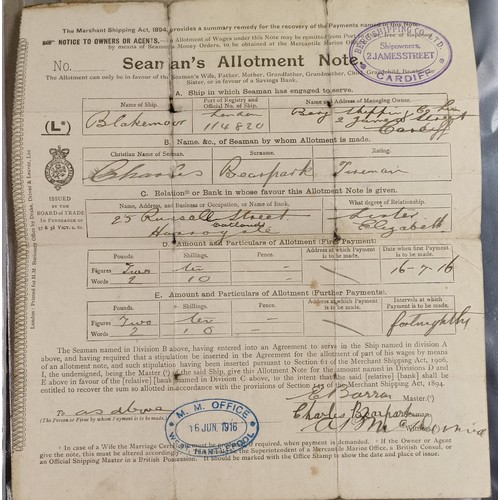 The Merchant Shipping Act, 1894, provides a summary remedy for the recovery of the Payments named in this Note.
NOTICE TO OWNERS OR AGENTS.—
by means of Seamen's Money Orders, to be obtained at the Mercantile Marine
No.
Seaman's Allotment Note.
SHIPPING CO. LTD.
Shipowners,
2 JAMES STREET
CARDIFF
The Allotment can only be in favour of the Seaman's Wife, Father, Mother, Grandfather, Grandmother, Child, Grandchild, Brother,
Sister, or in favour of a Savings Bank.
A. Ship in which Seaman has engaged to serve.
Name of Ship.
Port of Registry and
Official No. of Ship.
Name and Address of Managing Owner.
(L*)
Blakemoor
London
114820
2 James Street
Cardiff
B. Name, &c., of Seaman by whom Allotment is made.
Christian Name of Seaman.
Surname.
Rating.
Charles
Bearpark
Fireman
ISSUED
BY THE
BOARD OF TRADE
C. Relation or Bank in whose favour this Allotment Note is given.
Name, Address, and Business or Occupation, or Name of Bank.
What degree of Relationship.
25 Russell Street
Sister
Elizabeth
D. Amount and Particulars of Allotment (First Payment).
Pounds.
Shillings.
Pence.
Address at which Payment
is to be made.
Date when first Payment
is to be made.
Figures
Two
ten
-
16-7-16
Words
2
10
E. Amount and Particulars of Allotment (Further Payments).
Pounds.
Shillings.
Pence.
Address at which Payment
is to be made.
Intervals at which
Payment is to be made.
Figures
Two
ten
-
fortnightly
Words
2
10
The Seaman named in Division B above, having entered into an Agreement to serve in the Ship named in division
A above, and having required that a stipulation be inserted in the Agreement for the allotment of part of his wages by means
of an allotment note, and such stipulation having been inserted pursuant to Section 61 of the Merchant Shipping Act, 1906,
I, the undersigned, being the Master (*) of the said Ship, give this Allotment Note for the amount named in Divisions D and
E above in favour of the [relative] [bank] named in Division C above, to the intent that the said [relative] [bank] shall be
entitled to recover the sum so allotted in accordance with the provisions of Section 141 of the Merchant Shipping Act, 1894.
Master.(*)
To as above
(The Person or Firm by whom Payment is to be made.)
M. M. OFFICE
16 JUN 1916
W. HARTLEPOOL
Charles Bearpark
* In case of a Wife the Marriage Certificate must be produced if required, when payment is demanded. If the Owner or Agent
give the note, this must be altered accordingly. Superintendent of a Mercantile Marine Office, a British Consul, or
an Official Shipping Master in a British Possession. It should be marked with the Office Stamp and the date and place of issue.